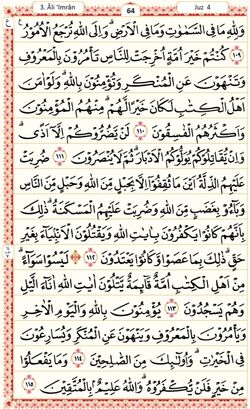 3. Āli 'Imrān 64 Juz 4
وَلِلّٰهِ مَا فِى السَّمٰوٰتِ وَمَا فِى الْاَرْضِ وَاِلَى اللّٰهِ تُرْجَعُ الْاُمُوْرُ
١٠٩ كُنْتُمْ خَيْرَ اُمَّةٍ اُخْرِجَتْ لِلنَّاسِ تَأْمُرُوْنَ بِالْمَعْرُوْفِ
وَتَنْهَوْنَ عَنِ الْمُنْكَرِ وَتُؤْمِنُوْنَ بِاللّٰهِ ۗ وَلَوْ اٰمَنَ
اَهْلُ الْكِتٰبِ لَكَانَ خَيْرًا لَّهُمْ ۗ مِنْهُمُ الْمُؤْمِنُوْنَ
وَاَكْثَرُهُمُ الْفٰسِقُوْنَ ١١٠ لَنْ يَّضُرُّوْكُمْ اِلَّآ اَذًى ۗ
وَاِنْ يُّقَاتِلُوْكُمْ يُوَلُّوْكُمُ الْاَدْبَارَ ۗ ثُمَّ لَا يُنْصَرُوْنَ ١١١ ضُرِبَتْ
عَلَيْهِمُ الذِّلَّةُ اَيْنَ مَا ثُقِفُوْٓا اِلَّا بِحَبْلٍ مِّنَ اللّٰهِ وَحَبْلٍ مِّنَ النَّاسِ
وَبَآءُوْ بِغَضَبٍ مِّنَ اللّٰهِ وَضُرِبَتْ عَلَيْهِمُ الْمَسْكَنَةُ ۗ ذٰلِكَ
بِاَنَّهُمْ كَانُوْا يَكْفُرُوْنَ بِاٰيٰتِ اللّٰهِ وَيَقْتُلُوْنَ الْاَنْۢبِيَآءَ بِغَيْرِ
حَقٍّ ۗ ذٰلِكَ بِمَا عَصَوْا وَّكَانُوْا يَعْتَدُوْنَ ١١٢ ۞ لَيْسُوْا سَوَآءً ۗ
مِنْ اَهْلِ الْكِتٰبِ اُمَّةٌ قَآئِمَةٌ يَّتْلُوْنَ اٰيٰتِ اللّٰهِ اٰنَآءَ الَّيْلِ
وَهُمْ يَسْجُدُوْنَ ١١٣ يُؤْمِنُوْنَ بِاللّٰهِ وَالْيَوْمِ الْاٰخِرِ
وَيَأْمُرُوْنَ بِالْمَعْرُوْفِ وَيَنْهَوْنَ عَنِ الْمُنْكَرِ وَيُسَارِعُوْنَ
فِى الْخَيْرٰتِ ۗ وَاُولٰۤئِكَ مِنَ الصّٰلِحِيْنَ ١١٤ وَمَا يَفْعَلُوْا
مِنْ خَيْرٍ فَلَنْ يُّكْفَرُوْهُ ۗ وَاللّٰهُ عَلِيْمٌۢ بِالْمُتَّقِيْنَ ١١٥